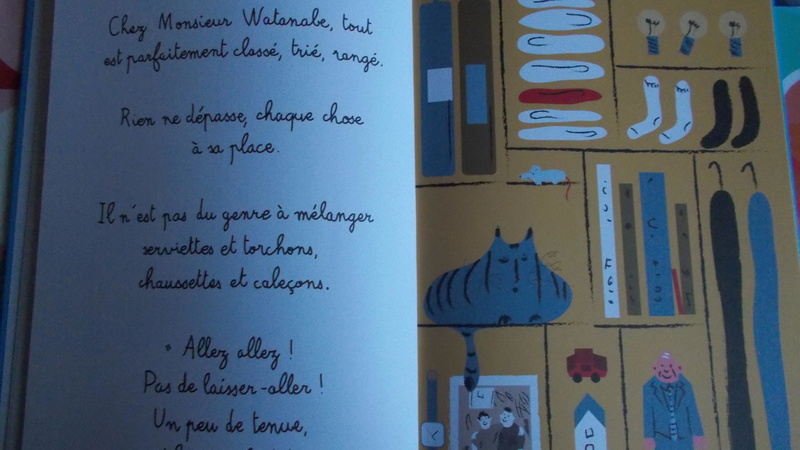 Chez Monsieur Watanabe, tout
est parfaitement classé, trié, rangé.
Rien ne dépasse, chaque chose
à sa place.
Il n'est pas du genre à mélanger
serviettes et torchons,
chaussettes et caleçons.
" Allez allez !
Pas de laisser-aller !
Un peu de tenue,